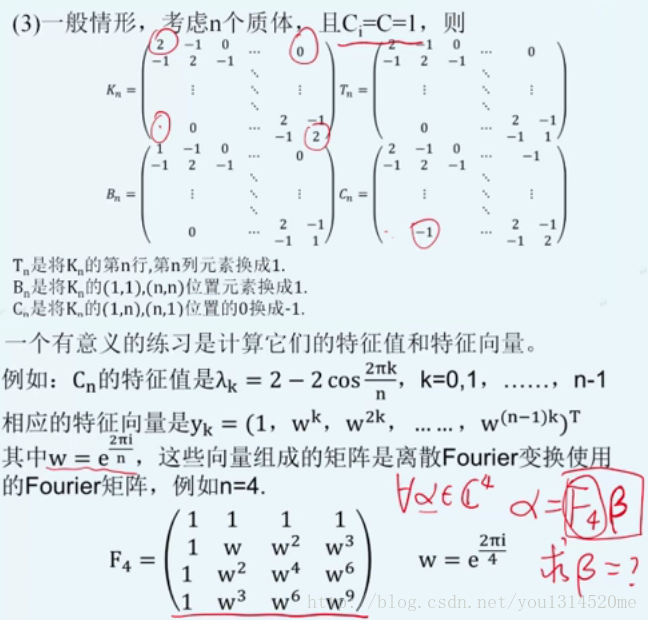 (3)一般情形，考虑n个质体，且Cᵢ=C=1，则
Kₙ = ( 2 −1 0 ⋯ 0
−1 2 −1
⋮ ⋱ ⋮
0 ⋯ 2 −1
−1 2 )
Tₙ = ( 2 −1 0 ⋯ 0
−1 2 −1
⋮ ⋱ ⋮
0 ⋯ 2 −1
−1 1 )
Bₙ = ( 1 −1 0 ⋯ 0
−1 2 −1
⋮ ⋱ ⋮
0 ⋯ 2 −1
−1 1 )
Cₙ = ( 2 −1 0 ⋯ −1
−1 2 −1
⋮ ⋱ ⋮
−1 ⋯ 2 −1
−1 2 )
Tₙ是将Kₙ的第n行,第n列元素换成1.
Bₙ是将Kₙ的(1,1),(n,n)位置元素换成1.
Cₙ是将Kₙ的(1,n),(n,1)位置的0换成-1.
一个有意义的练习是计算它们的特征值和特征向量。
例如：Cₙ的特征值是λₖ = 2 − 2 cos 2πk/n，k=0,1，……，n-1
相应的特征向量是yₖ = (1，wᵏ，w²ᵏ，……，w⁽ⁿ⁻¹⁾ᵏ)ᵀ
其中w = e^(2πi/n)，这些向量组成的矩阵是离散Fourier变换使用
的Fourier矩阵，例如n=4.
∀α∈ℂ⁴ α=F₄β
求β=?
F₄ = ( 1 1 1 1
1 w w² w³
1 w² w⁴ w⁶
1 w³ w⁶ w⁹ )
w = e^(2πi/4)
http://blog.csdn.net/you1314520me